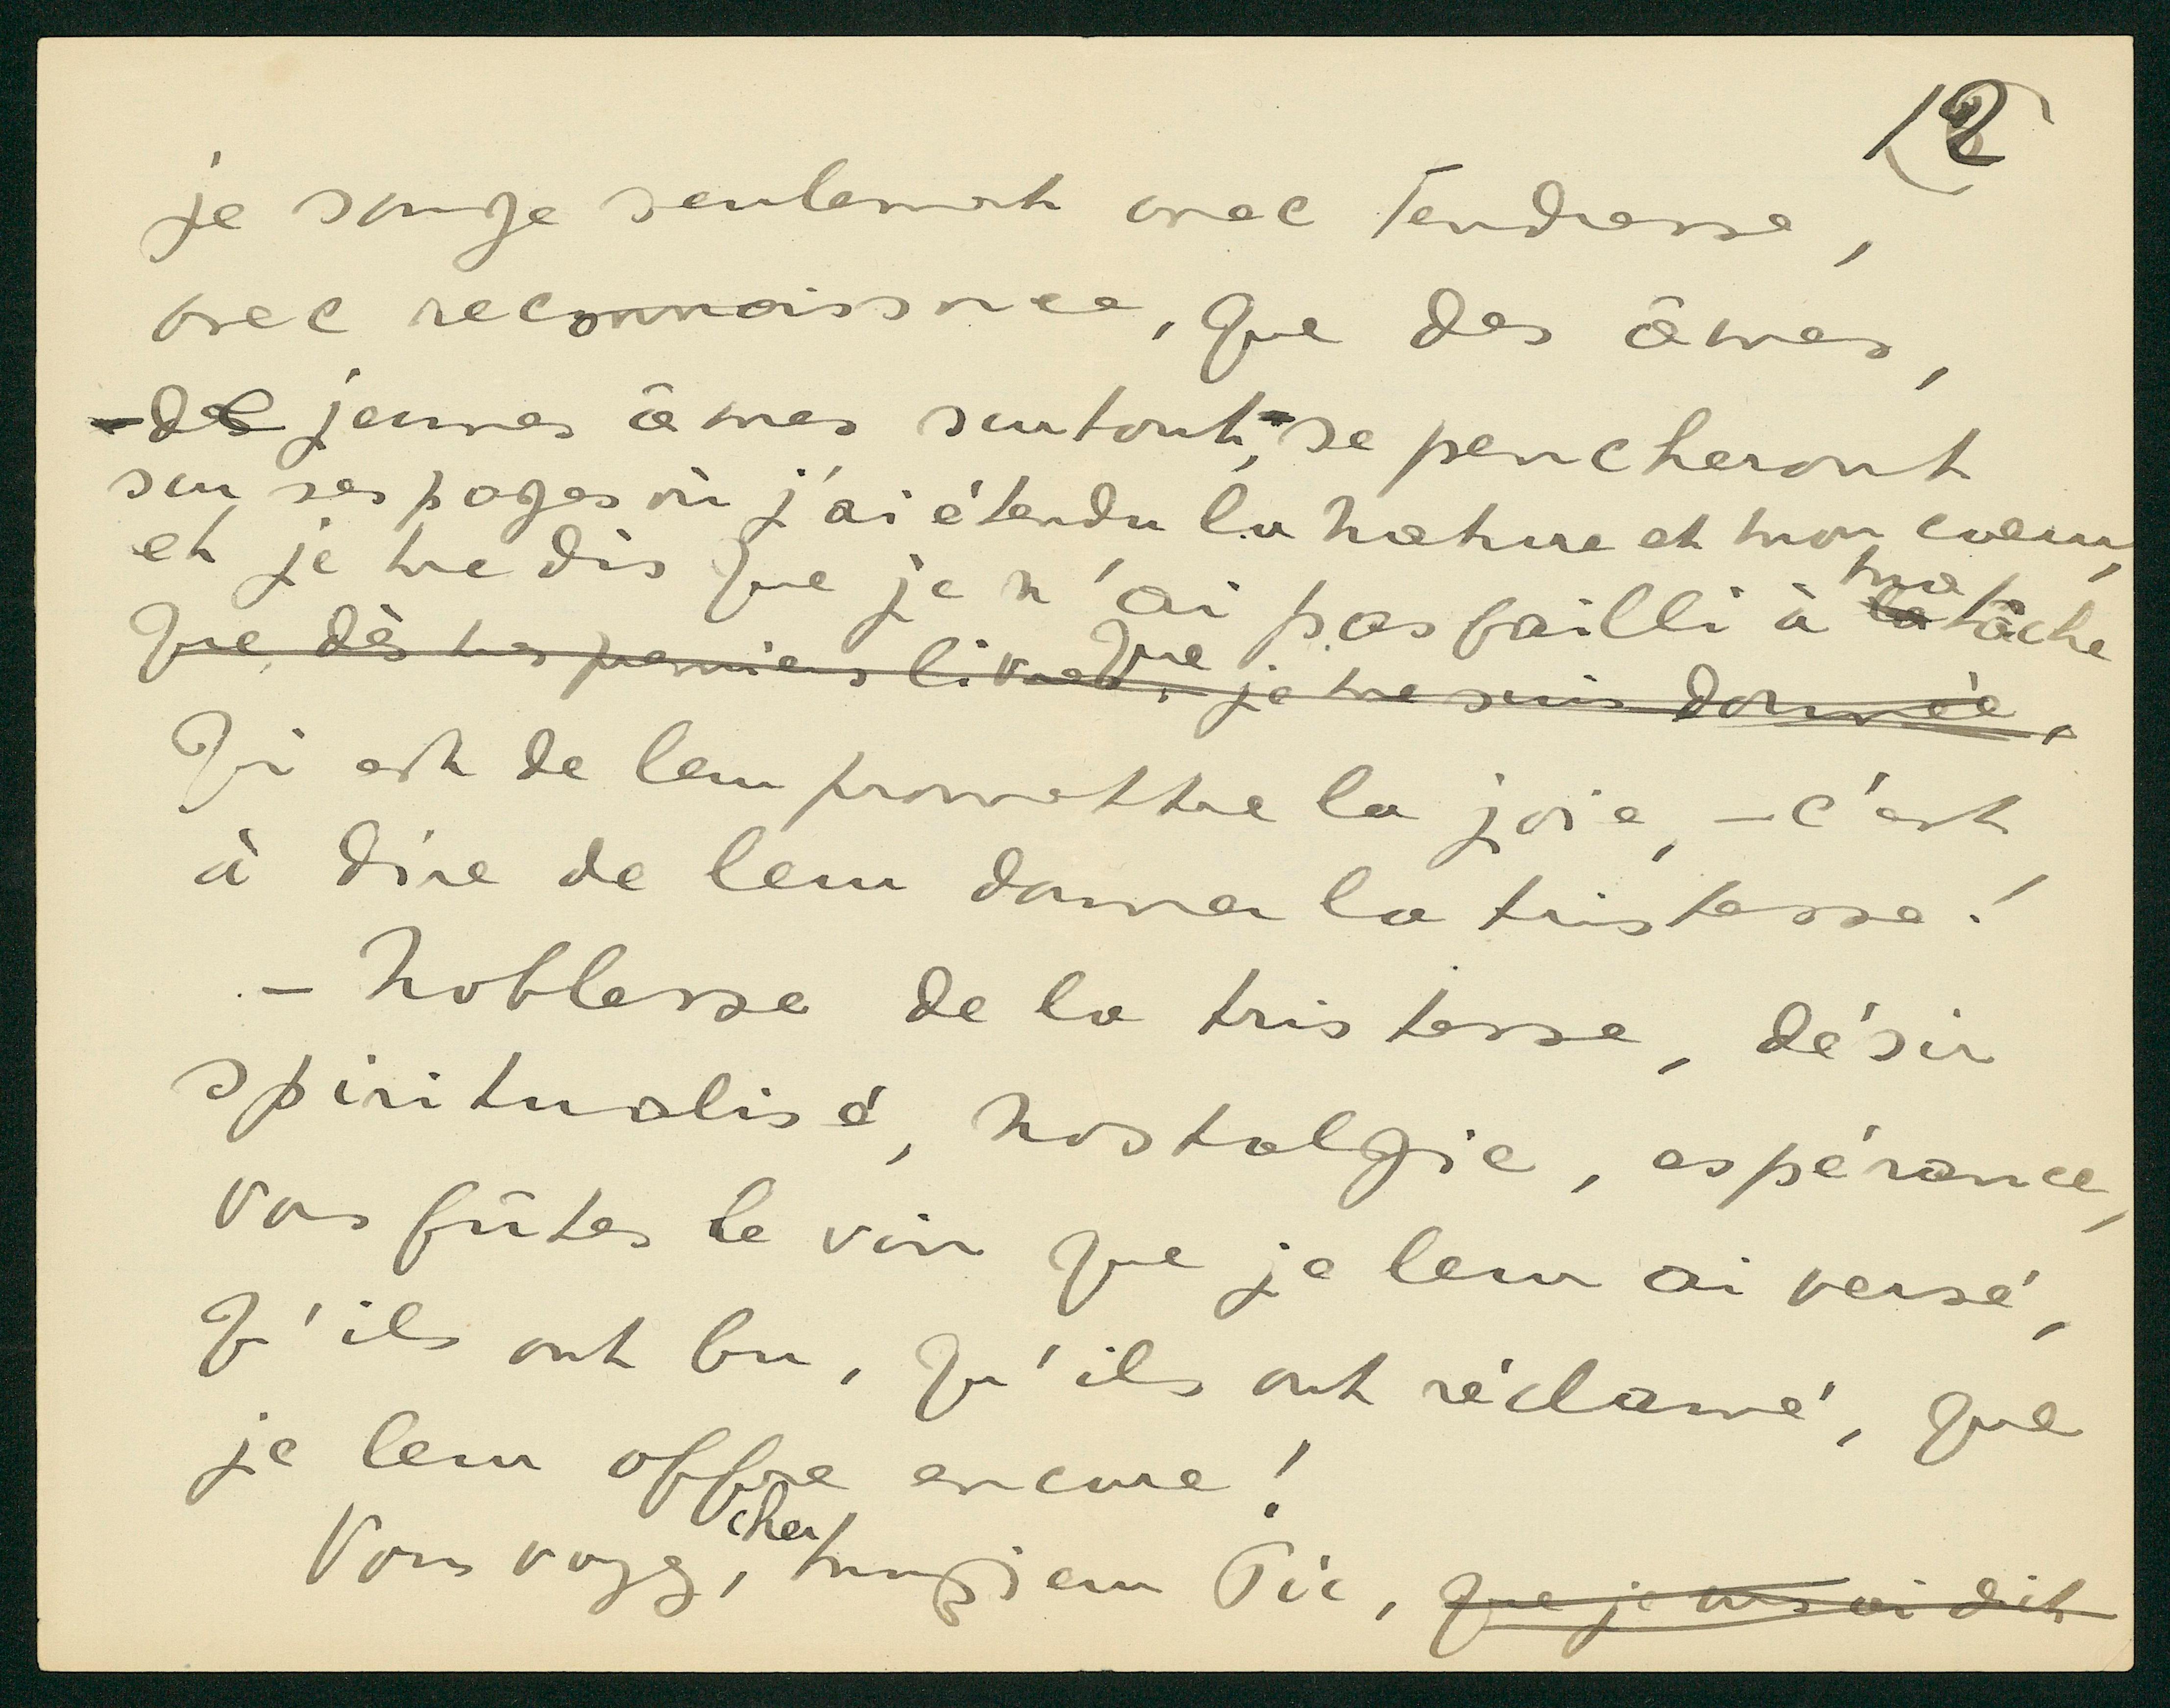 12
je songe seulement avec Tendresse,
avec reconnaissance, que des âmes,
- de jeunes âmes surtout, - se pencheront
sur ses pages où j'ai étendu la nature et mon coeur,
et je me dis que je n'ai pas failli à la ma tâche
que, dès mes premiers livres, que je me suis donnée,
qui est de leur promettre la joie, - c'est
à dire de leur donner la tristesse!
- Noblesse de la tristesse, désir
spiritualisé, nostalgie, espérance,
vous fûtes le vin que je leur ai versé,
qu'ils ont bu, qu'ils ont réclamé, que
je leur offre encore!
Vous voyez, cher monsieur Pic, que je vous ai dit